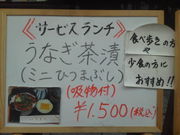 《サービスランチ》
うなぎ茶漬
(ミニひつまぶし)
(吸物付)
¥1,500(税込)
食べ歩きの方
や
少食の方に
おすすめ!!